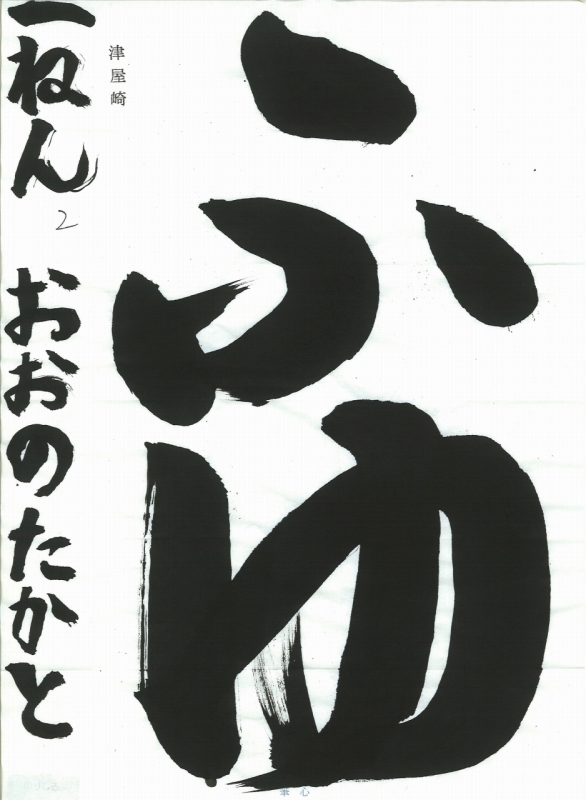 ふゆ
津屋崎
一ねん2 おおのたかと
筆心